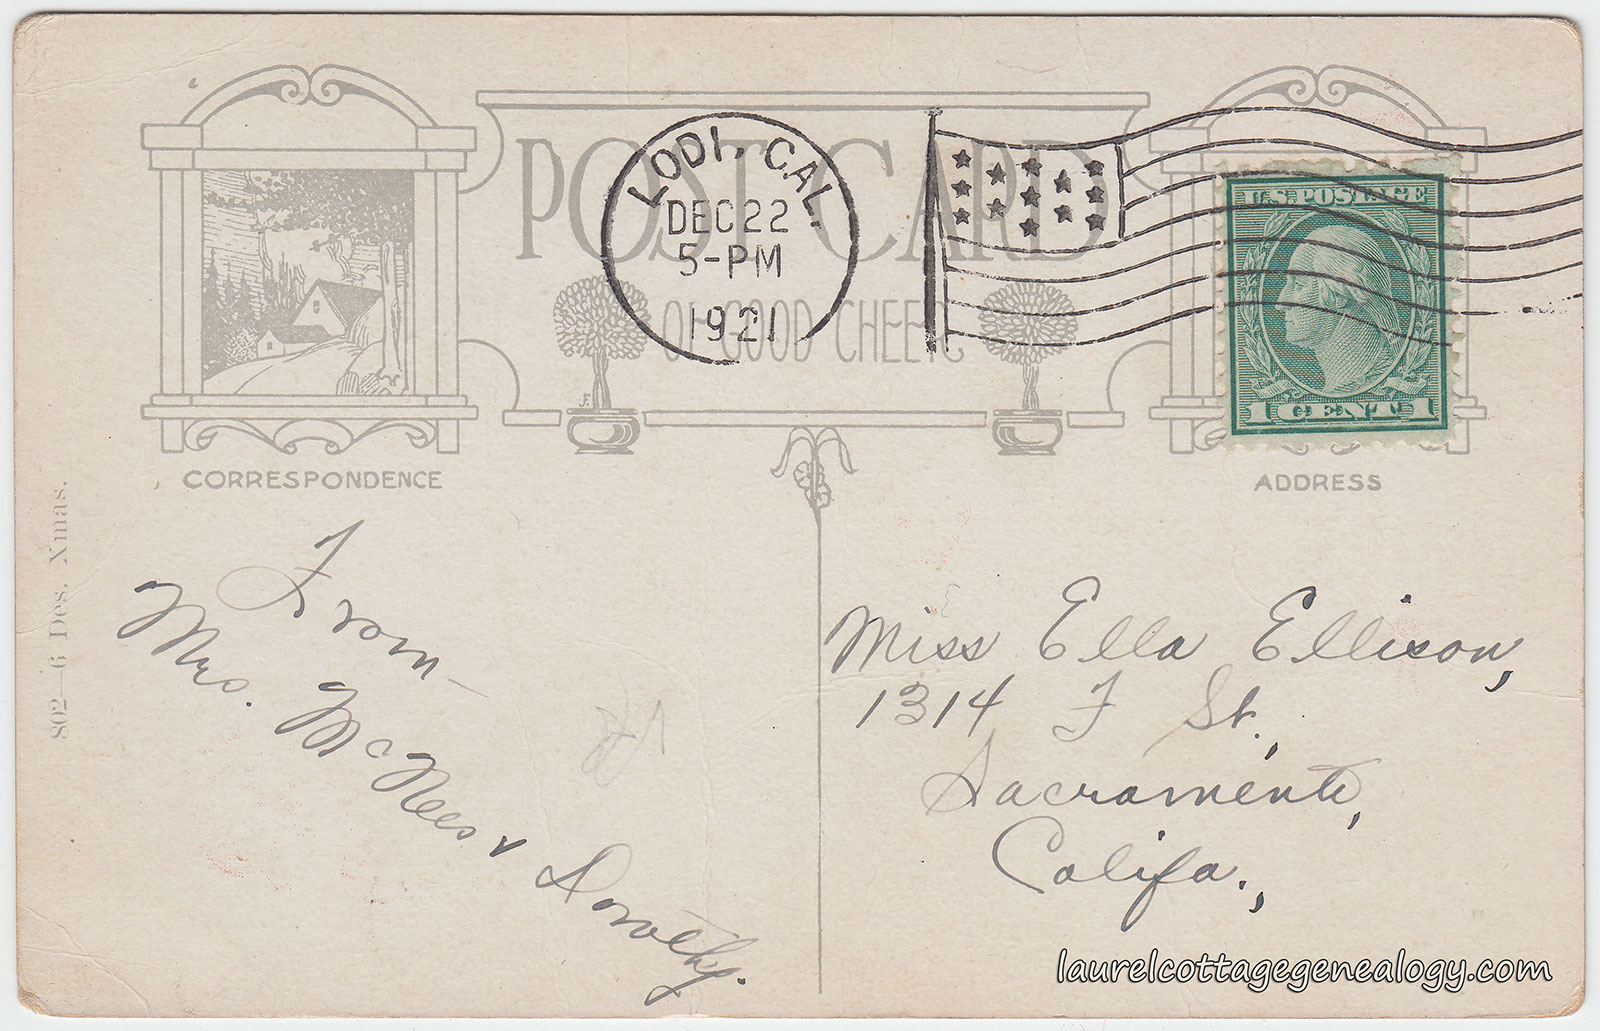 POST CARD
OF GOOD CHEER
LODI, CAL.
DEC 22
5-PM
1921
U.S. POSTAGE
1 CENT 1
CORRESPONDENCE
ADDRESS
802—6 Des. Xmas.
From—
Mrs. McNees &
Dorothy.
Miss Ella Ellison,
1314 F St.,
Sacramento,
Califa.,
laurelcottagegenealogy.com